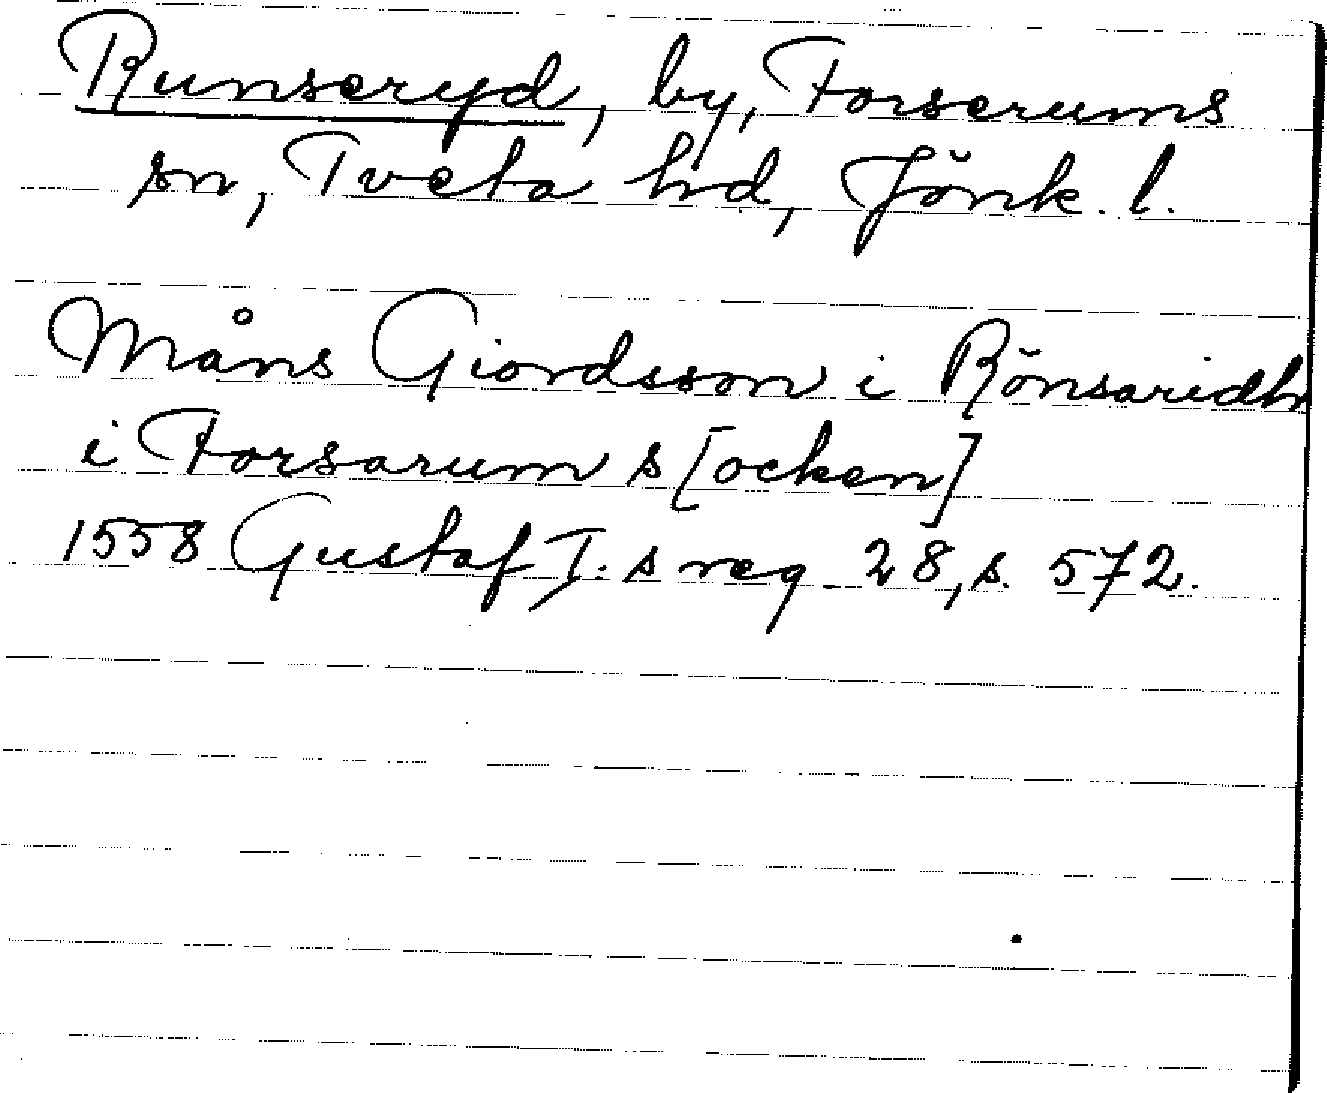 Runseryd, by, Forserums
sn, Tveta hd, Jönk. l.
Måns Giordsson i Rönsaridh
i Forsarum s[ocken]
1558 Gustaf I:s reg. 28, s. 572.